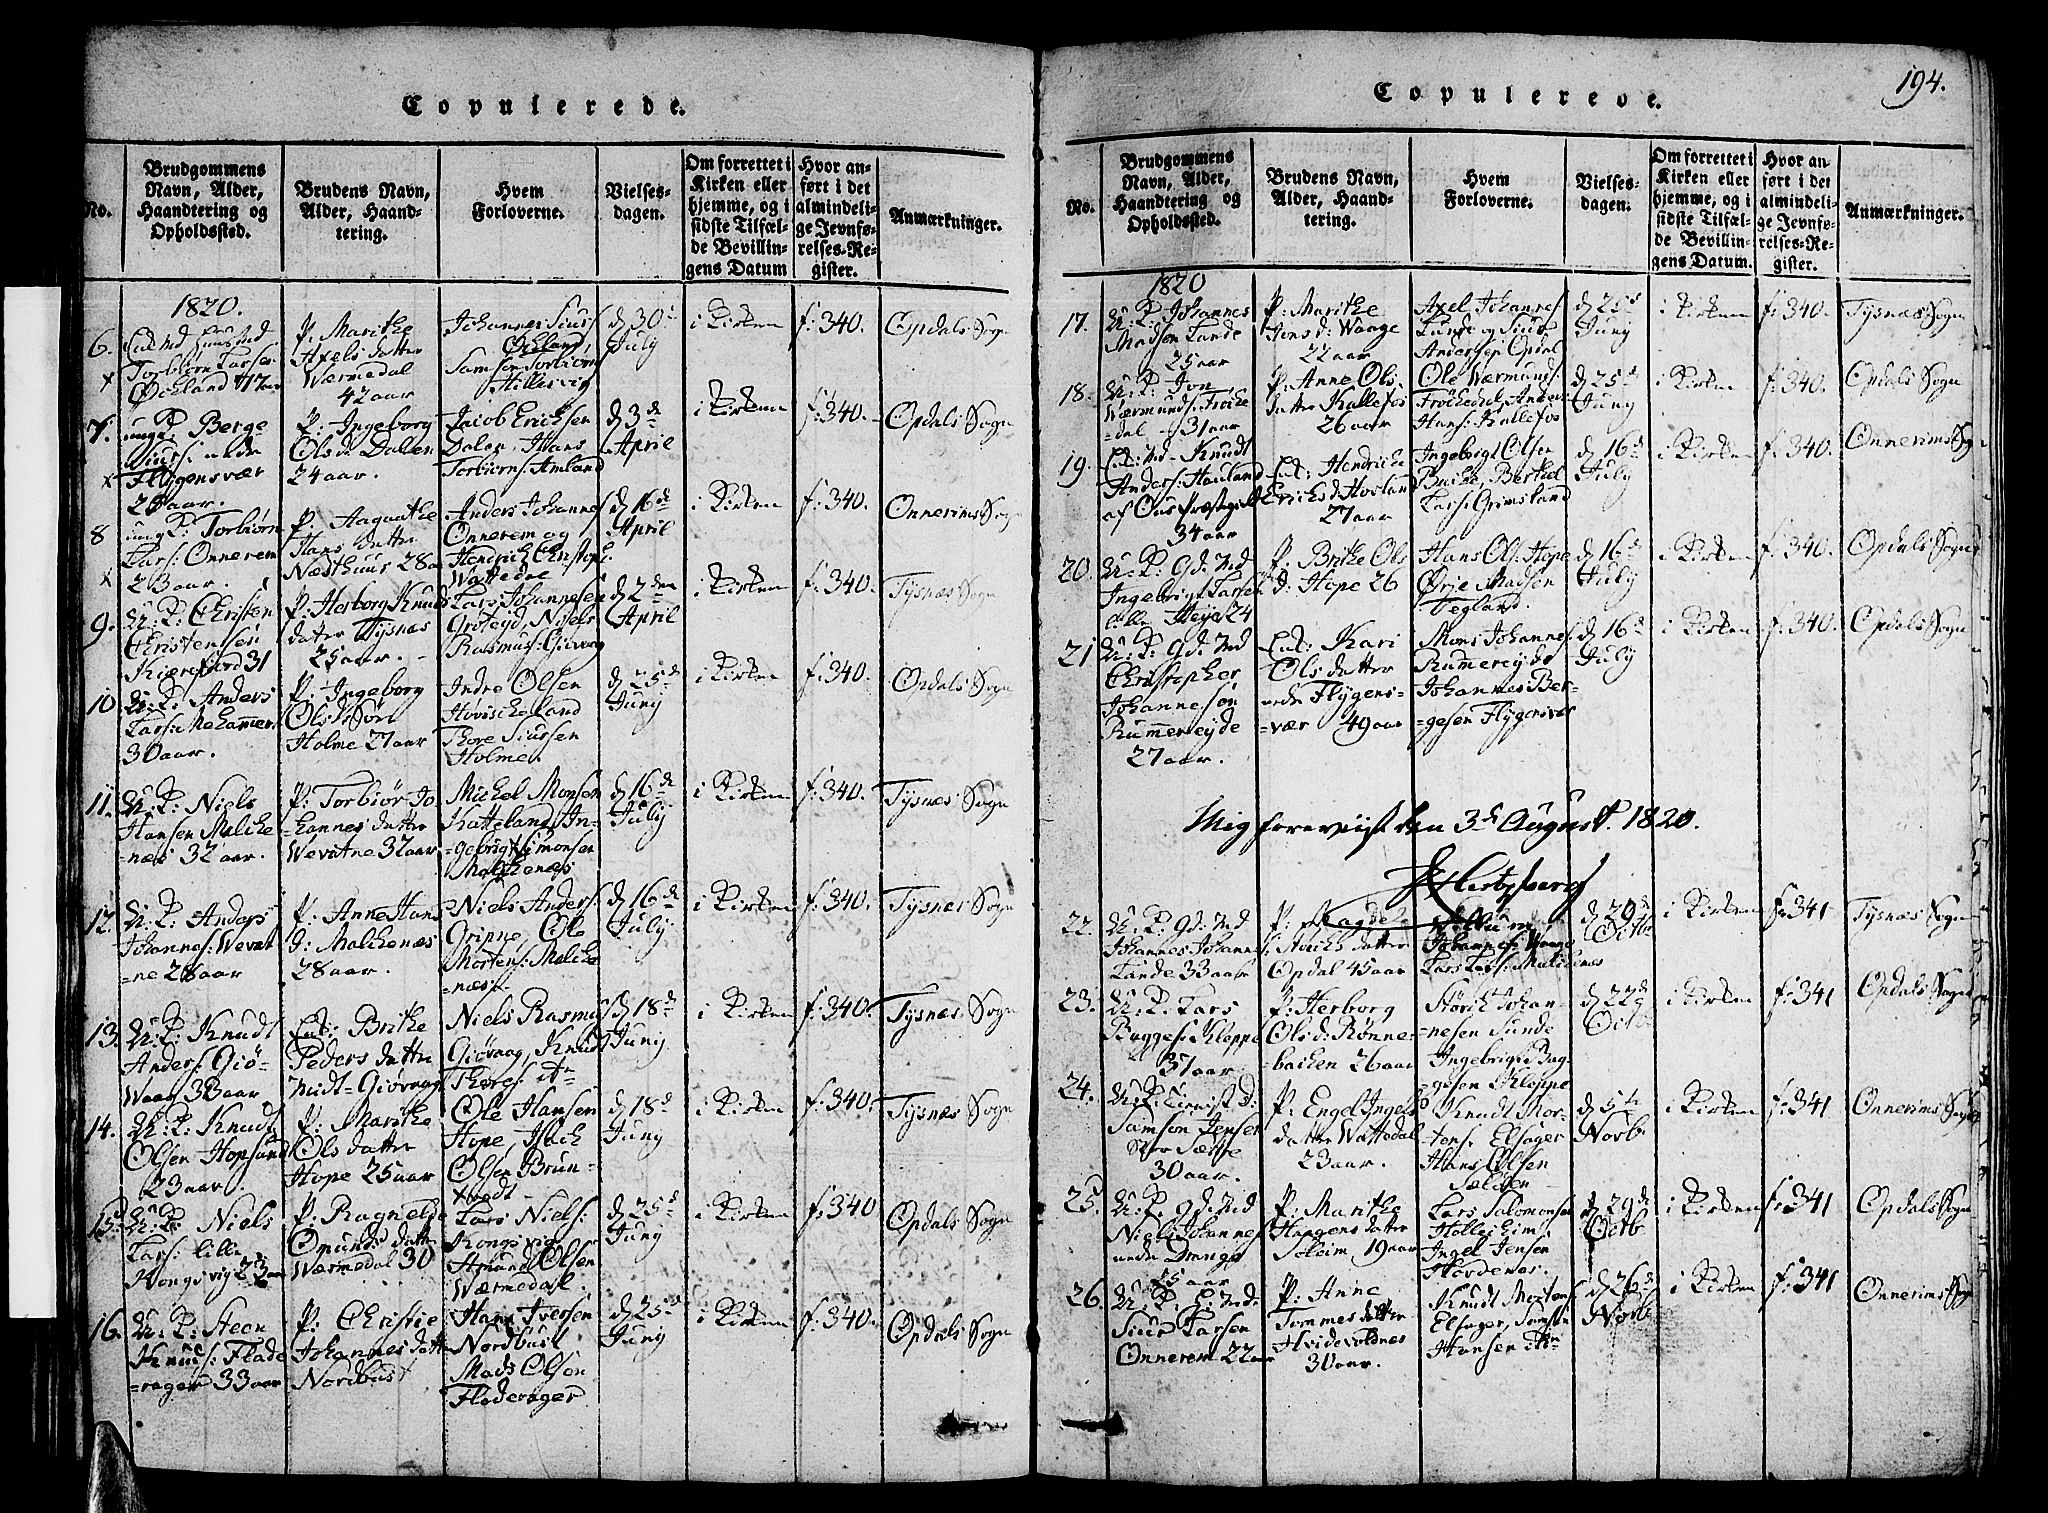 Copulerede.
No.
Brudgommens
Navn, Alder,
Haandtering og
Opholdssted.
Brudens Navn,
Alder, Haand-
tering.
Hvem
Forloverne.
Vielses-
dagen.
Om forrettet i
Kirken eller
hjemme, og i
sidste Tilfæl-
de Bevillin-
gens Datum
Hvor an-
ført i det
almindeli-
ge Jevnfø-
relses-Re-
gister.
Anmærkninger.
1820.
6.
Torbiørn Lars:
P: Marithe
Axels datter
Wærmedal
42 aar
Johannes Siurs:
Økland,
Samson Torbiørns:
Hillesvig
d 30te
July
i Kirken
f: 340.
Opdals Sogn
7.
ungk: Berge
Siurs:
Flygensvær
P: Ingeborg
Ols d: Dalen
24 aar.
Jacob Ericksen
Dalen, Hans
Torbiørns: Amland
d 3de
April
i Kirken
f: 340.
Opdals Sogn
8
ung K: Torbiørn
Lars: Onnerem
23 aar.
P: Aagaathe
Hans datter
Næsthuus 28 aar
Anders Johannes:
Onnerem og
Hendrich Christoph:
Wattedal
d 16de
April
i Kirken
f: 340.
Onnerims Sogn
9.
U: K: Christen
Christensen
31
P: Herborg Knuds
datter Tysnæs
25 aar.
Lars Johannesen
Groteyd, Niels
Rasmus: Giøvaag
d 2den
April
i Kirken
f: 340.
Tysnæs Sogn
10
U: K: Anders
Lars:
30 aar.
P: Ingeborg
Ols d: Sør
Holme 27 aar
Andre Olsen
Hovischeland
Thore Siursen
Holme.
d 25de
Juny
i Kirken
f: 340
Opdals Sogn
11.
U: K: Niels
Hansen Malche
=næs 32 aar.
P: Torbiør Jo
=hannes datter
Wevatne 32 aar
Michel Monsen
Katteland, In-
=gebrigt Simonsen
Malchenæs
d 16de
July
i Kirken
f: 340.
Tysnæs Sogn
12.
U: K: Anders
Johannes: Wevat
=ne 28 aar
P: Anne Hans
d: Malchenæs
28 aar.
Niels Anders:
Gripne, Ole
Mortens: Malche
=næs.
d 16de
July
i Kirken
f: 340.
Tysnæs Sogn
13.
U: K: Knudt
Anders: Giø-
Waag 33 aar
Enk: Brithe
Peders datter
Midt=Giøvaag
Niels Rasmus:
Giøvaag, Knud
Thores: itm
d 18de
Juny
i Kirken
f: 340.
Tysnæs Sogn
14.
U: K: Knudt
Olsen Hopsund
23 aar.
P: Marithe
Ols datter
Hope 25 aar
Ole Hansen
Hope, Isach
Olsen Brun-
tvedt
d 18d
Juny
i Kirken
f: 340.
Tysnæs Sogn
15.
U: K: Niels
Lars: lille
Kongsvig 23 aar
P: Ragnelde
Omunds datter
Wærmedal 30
Lars Niels:
Kongsvig
Amund Olsen
Wærmedal.
d 25de
Juny
i Kirken
f: 340
Opdals Sogn
16.
U: K: Steen
Knuds: Flade
=rager 33 aar
P: Christie
Johannes datter
Nordhust
Hans Iversen
Nordhust
Mads Olsen
Fladerager
d 25de
Juny
i Kirken
f: 340.
Opdals Sogn
Copulerede.
194.
No.
Brudgommens
Navn, Alder,
Haandtering og
Opholdssted.
Brudens Navn,
Alder, Haand-
tering.
Hvem
Forloverne.
Vielses-
dagen.
Om forrettet i
Kirken eller
hjemme, og i
sidste Tilfæl-
de Bevillin-
gens Datum.
Hvor an-
ført i det
almindeli-
ge Jevnfø-
relses-Re-
gister.
Anmærkninger.
1820
17.
U: K: Johannes
Madsen Lande
25 aar
P: Marithe
Jons d: Waage
22 aar
Axel Johannes:
Lunde og Siur
Andersen Opdal
d 25de
Juny
i Kirken
f: 340.
Tysnæs Sogn
18.
U: K: Jon
Wærmunds: Frøche
dal - 31 aar
P: Anne Ols
datter Kallefos
26 aar
Ole Wærmunds:
Frøchedal, Anders
Hans: Kallefos
d 25de
Juny
i Kirken
f: 340.
Opdals Sogn
19.
Knudt
Anders: Hauland
af Ous Præstegield
34 aar
Enk: Hendriche
Erichs d: Hovland
27 aar
Ingebrigt Olsen
Bache, Berthel
Lars: Grimstand
d 16de
July
i Kirken
f: 340.
Onnerims Sogn
20.
U: K: Gd: Md
Ingebrigt Larsen
24
P: Brithe Ols
d: Hope 26
Hans Ols: Hope
Ørje Madsen
Tegland.
d 16de
July
i Kirken
f: 340.
Opdals Sogn
21
U: K: Gd: Md
Christopher
Johannesøn
Rummereyde
27 aar.
Enk: Kari
Ols datter
nedre Flygens-
=vær 49 aar
Mons Johannes:
Rumereyde
Johannes Ber-
=gesen Flygensvær
d 16de
July
i Kirken
f: 340.
Opdals Sogn
Mig foreviist den 3de August. 1820.
Hertzberg
22.
U: K: Gd: Md
Johannes Johannes:
Lande 33 aar
P:
datter
Opdal 45 aar
Willum
Johannes: Waage
Lars Lars: Malchenæs
d 29de
Octb
i Kirken
f: 341
Tysnæs Sogn
23.
U: K: Lars
Bagges: Kloppe
37 aar.
P: Herborg
Ols d: Rønne-
bachen 26 aar
Størch Johan-
nesen Sunde
Ingebrigt Bag-
gesen Kloppe
d 22de
Octb
i Kirken
f: 341
Opdals Sogn
24.
Samson Jensen
30 aar.
P: Engel Ingels
datter Wattedal
23 aar.
Knudt Mor-
tens: Elsager
Hans Olsen
Sælden
d 5te
Novb
i Kirken
f: 341
Onnerims Sogn
25.
U: K: Gd: Md
Niels Johannes:
nedre Drange
25 aar
P: Marithe
Haagens datter
Soleim 19 aar
Lars Salomonsen
Holleheim
Ingel Jensen
Hovdenæs.
d 29de
Octb
i Kirken
f: 341
Opdals Sogn
26.
Siur Larsen
Onnerem 22 aar
P: Anne
Tommes datter
Hvidevoldnes
30 aar.
Knudt Mortens:
Elsager,
Hansen itm
d 26de
Novb
i Kirken
f: 341
Onnerims Sogn